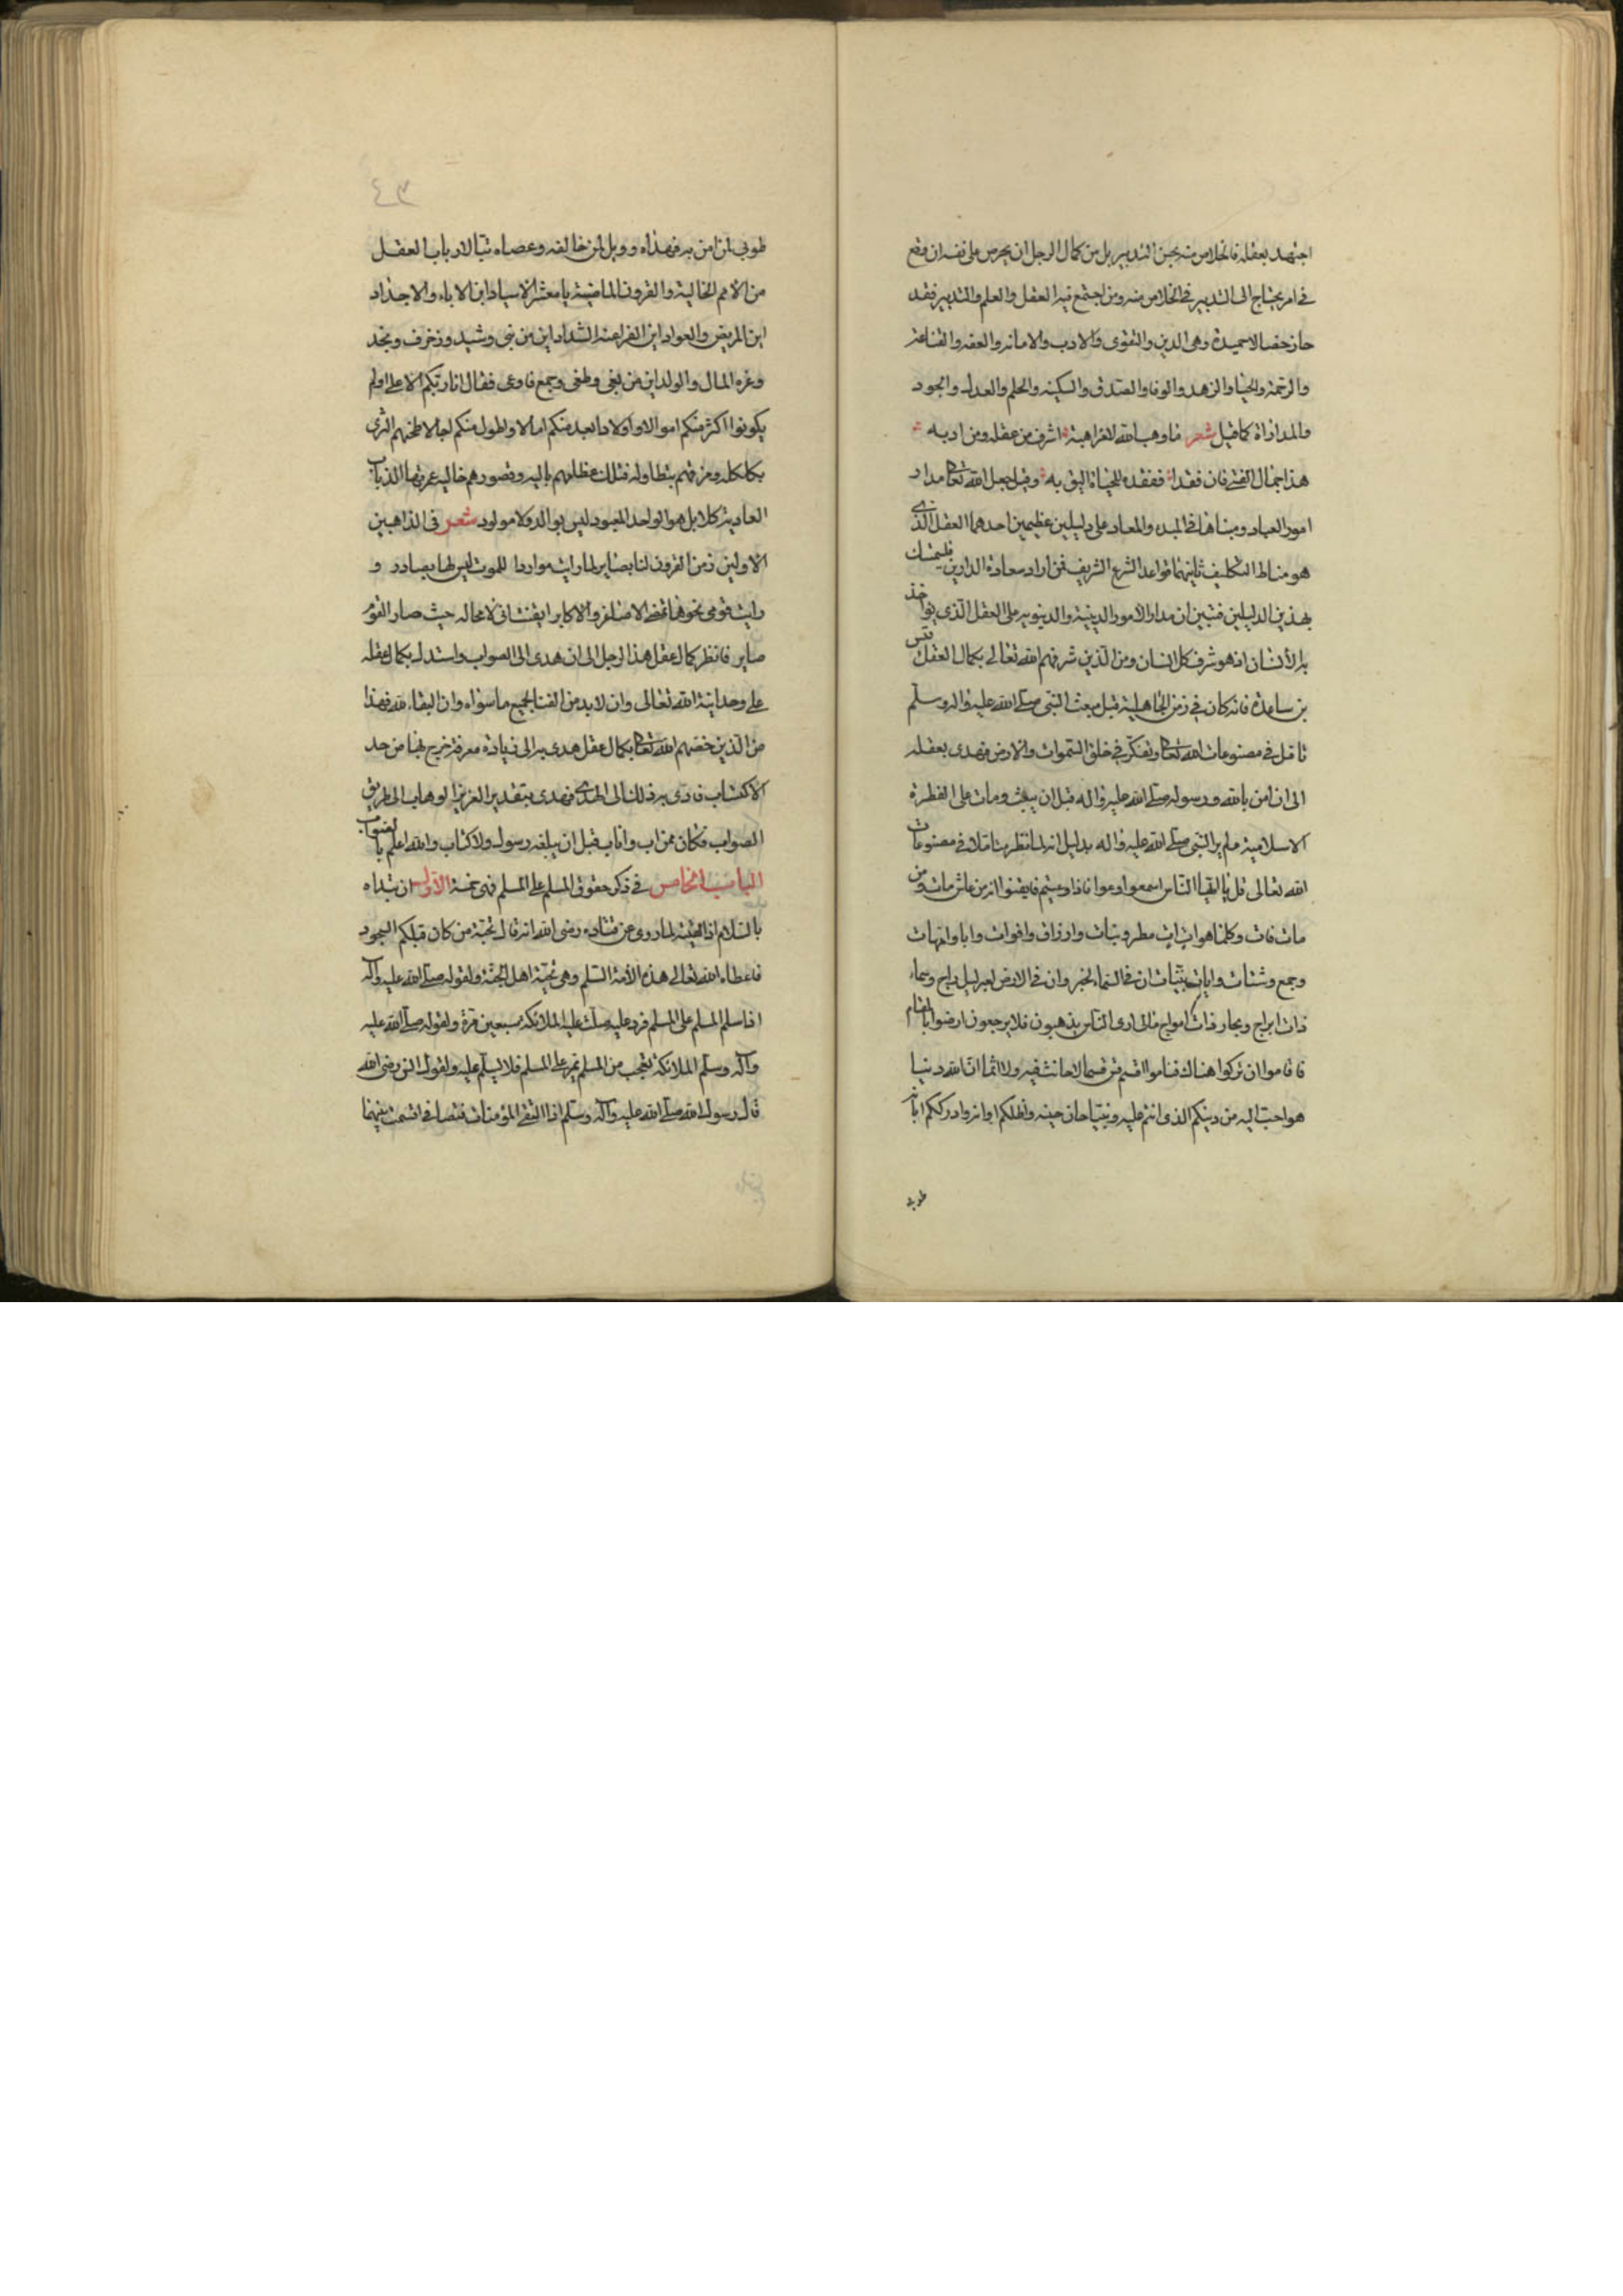 اجتهد بعقله فالخلاص منه بحسن التدبير بل من كمال الرجل ان يحرص على نفسه ان وقع
في امر يحتاج الى التدبير في الخلاص منه ومن اجتمع فيه العقل والعلم والتدبير فقد
حاز خصالا حميدة وهى الدين والتقوى والادب والامانه والعفه والقناعه
والرحمة والحيا والزهد والوفا والصدق والسكينه والحلم والعدل والجود
والمداراة كما قيل شعر ما وهب الله لامرء هبة اشرف من عقله ومن ادبه
هذا جمال الفتى فان فقدا ففقده للحياة اليق به وقيل جعل الله تعالى مدار
امور العباد ومبناها في المبدء والمعاد على دليلين عظيمين احدهما العقل الذى
هو مناط التكليف ثانيهما قواعد الشرع الشريف فمن اراد سعادة الدارين فليتمسك
بهذين الدليلين فتبين ان مدار الامور الدينية والدنيويه على العقل الذى يواخذ
به الانسان اذ هو شرف كل انسان ومن الذين شرفهم الله تعالى بكمال العقل قس
بن ساعدة فانه كان في زمن الجاهلية قبل مبعث النبى صلى الله عليه واله وسلم
تامل في مصنوعات الله تعالى وتفكر في خلق السموات والارض فهدى بعقله
الى ان امن بالله ورسوله صلى الله عليه واله قبل ان يبعث ومات على الفطرة
الاسلامية علم به النبى صلى الله عليه واله بدليل انه لما نظر متاملا في مصنوعات
الله تعالى قال يا ايها الناس اسمعوا وعوا فاذا وعيتم فايقنوا انه من عاش مات ومن
مات فات وكلما هو ات ات مطر ونبات وارزاق واقوات وابا وامهات
وجمع وشتات وايات بينات ان في السماء لخبر وان في الارض لعبر ليل داج وسماء
ذات ابراج وبحار ذات امواج مالى ارى الناس يذهبون فلا يرجعون ارضوا بالمقام
فاقاموا ان تركوا هناك فناموا اقسم قس قسما لا حانث فيه ولا اثما ان لله دينا
هو احب اليه من دينكم الذى انتم عليه ونبيا حان حينه واظلكم اوانه وادرككم ابانه
طوبى
٤٣
طوبى لمن امن به فهداه وويل لمن خالفه وعصاه تبا لارباب العقل
من الامم الخالية والقرون الماضية يا معشر الاسياد اين الاباء والاجداد
اين المريض والعواد اين الفراعنة الشداد اين من بنى وشيد وزخرف ونجد
وغره المال والولد اين من بغى وطغى وجمع فاوعى فقال انا ربكم الاعلى اولم
يكونوا اكثر منكم اموالا واولادا وابعد منكم امالا واطول منكم اجالا طحنهم الثرى
بكلكله ومزقهم بتطاوله فتلك عظامهم باليه وقصورهم خاليه عمرتها الذياب
العاديه كلا بل هو الواحد المعبود ليس بوالد ولا مولود شعر في الذاهبين
الاولين من القرون لنا بصاير لما رايت مواردا للموت ليس لها مصادر و
رايت قومى نحوها تمضى الاصاغر والاكابر ايقنت انى لا محاله حيث صار القوم
صاير فانظر كمال عقل هذا الرجل الى ان هدى الى الصواب واستدل بكمال عقله
على وحدانية الله تعالى وان لا بد من الفنا لجميع ما سواه وان البقاء لله فهذا
من الذين خصهم الله تعالى بكمال عقل هدى به الى زيادة معرفة خرج بها من حد
الاكتساب فادى به ذلك الى الهدى فهدى بتقدير العزيز الوهاب الى طريق
الصواب فكان ممن اب واناب قبل ان يبلغه رسول ولا كتاب والله اعلم بالصواب
الباب الخامس في ذكر حقوق المسلم على المسلم فهى خمسة الاول ان تبداه
بالسلام اذا لقيته لما روى عن قتاده رضى الله انه قال تحية من كان قبلكم السجود
فاعطاء الله تعالى هذه الامة السلم وهى تحية اهل الجنة ولقوله صلى الله عليه وآله
اذا سلم المسلم على المسلم فرد عليه صلت عليه الملائكه سبعين مرة ولقوله صلى الله عليه
وآله وسلم الملائكة تعجب من المسلم يمر على المسلم فلا يسلم عليه ولقول انس رضى الله
قال رسول الله صلى الله عليه وآله وسلم اذا التقى المؤمنان فتصافحا قسمت بينهما